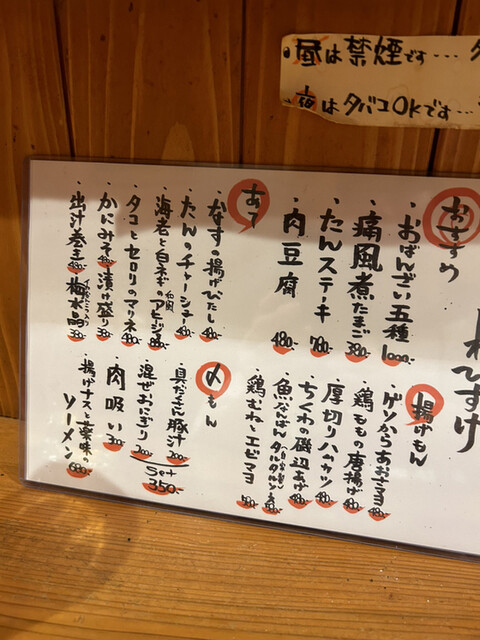 昼は禁煙です…
夜はタバコOKです…
おすすめ
・おばんざい五種 1000-
・痛風煮たまご 380-
・たんステーキ 780-
・肉豆腐 480-
あて
・なすの揚げびたし 480-
・たんのチャーシュー 480-
・海老と白ネギの和風アヒージョ
・タコとセロリのマリネ 480-
・かにみそ 480-
漬け盛り 380-
・出汁巻き 480-
梅水晶 380-
揚げもん
・ゲソからあおさマヨ 480-
・鶏ももの唐揚げ 480-
・厚切りハムカツ
・ちくわの磯辺あげ
・魚なんばん
・鶏むね、エビマヨ
〆もん
・具だくさん豚汁 200-
・混ぜおにぎり 200-
Set 350-
・肉吸い 300-
・揚げナスと薬味の
ソーメン 680-